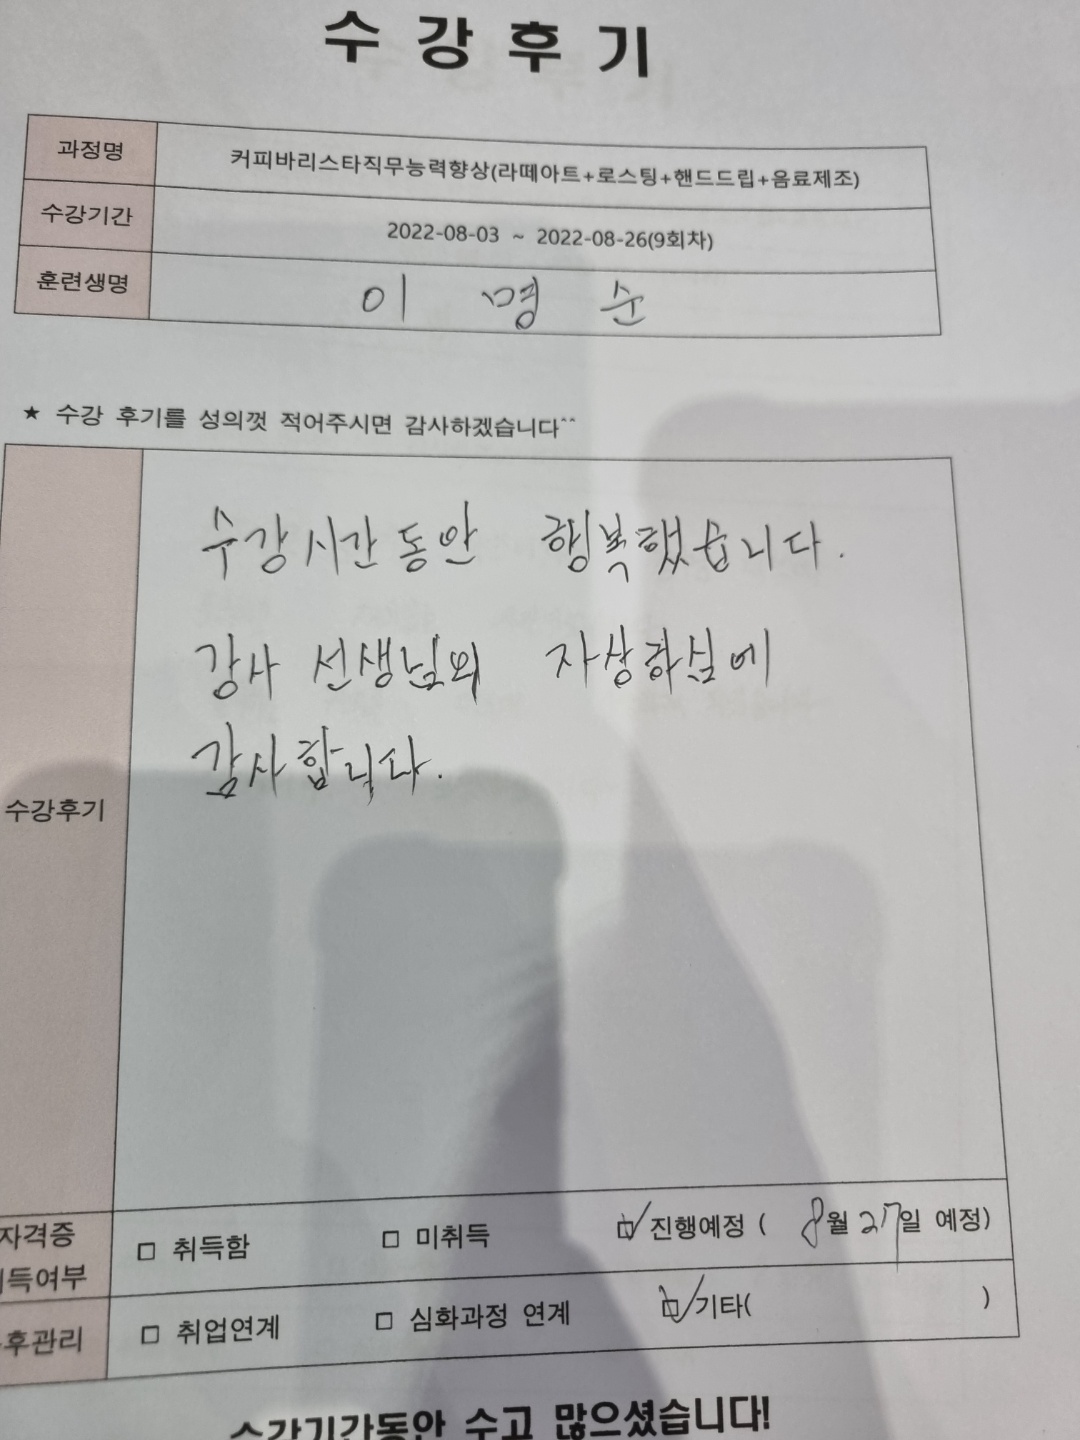 수강후기
과정명 커피바리스타직무능력향상(라떼아트+로스팅+핸드드립+음료제조)
수강기간 2022-08-03 ~ 2022-08-26(9회차)
훈련생명 이 명 순
★ 수강 후기를 성의껏 적어주시면 감사하겠습니다^^
수강시간동안 행복했습니다.
강사 선생님의 자상하심에
감사합니다.
수강후기
자격증 □ 취득함 □ 미취득 ☑ 진행예정 ( 8월 27일 예정)
득여부
후관리 □ 취업연계 □ 심화과정 연계 ☑ 기타( )
수강기간동안 수고 많으셨습니다!